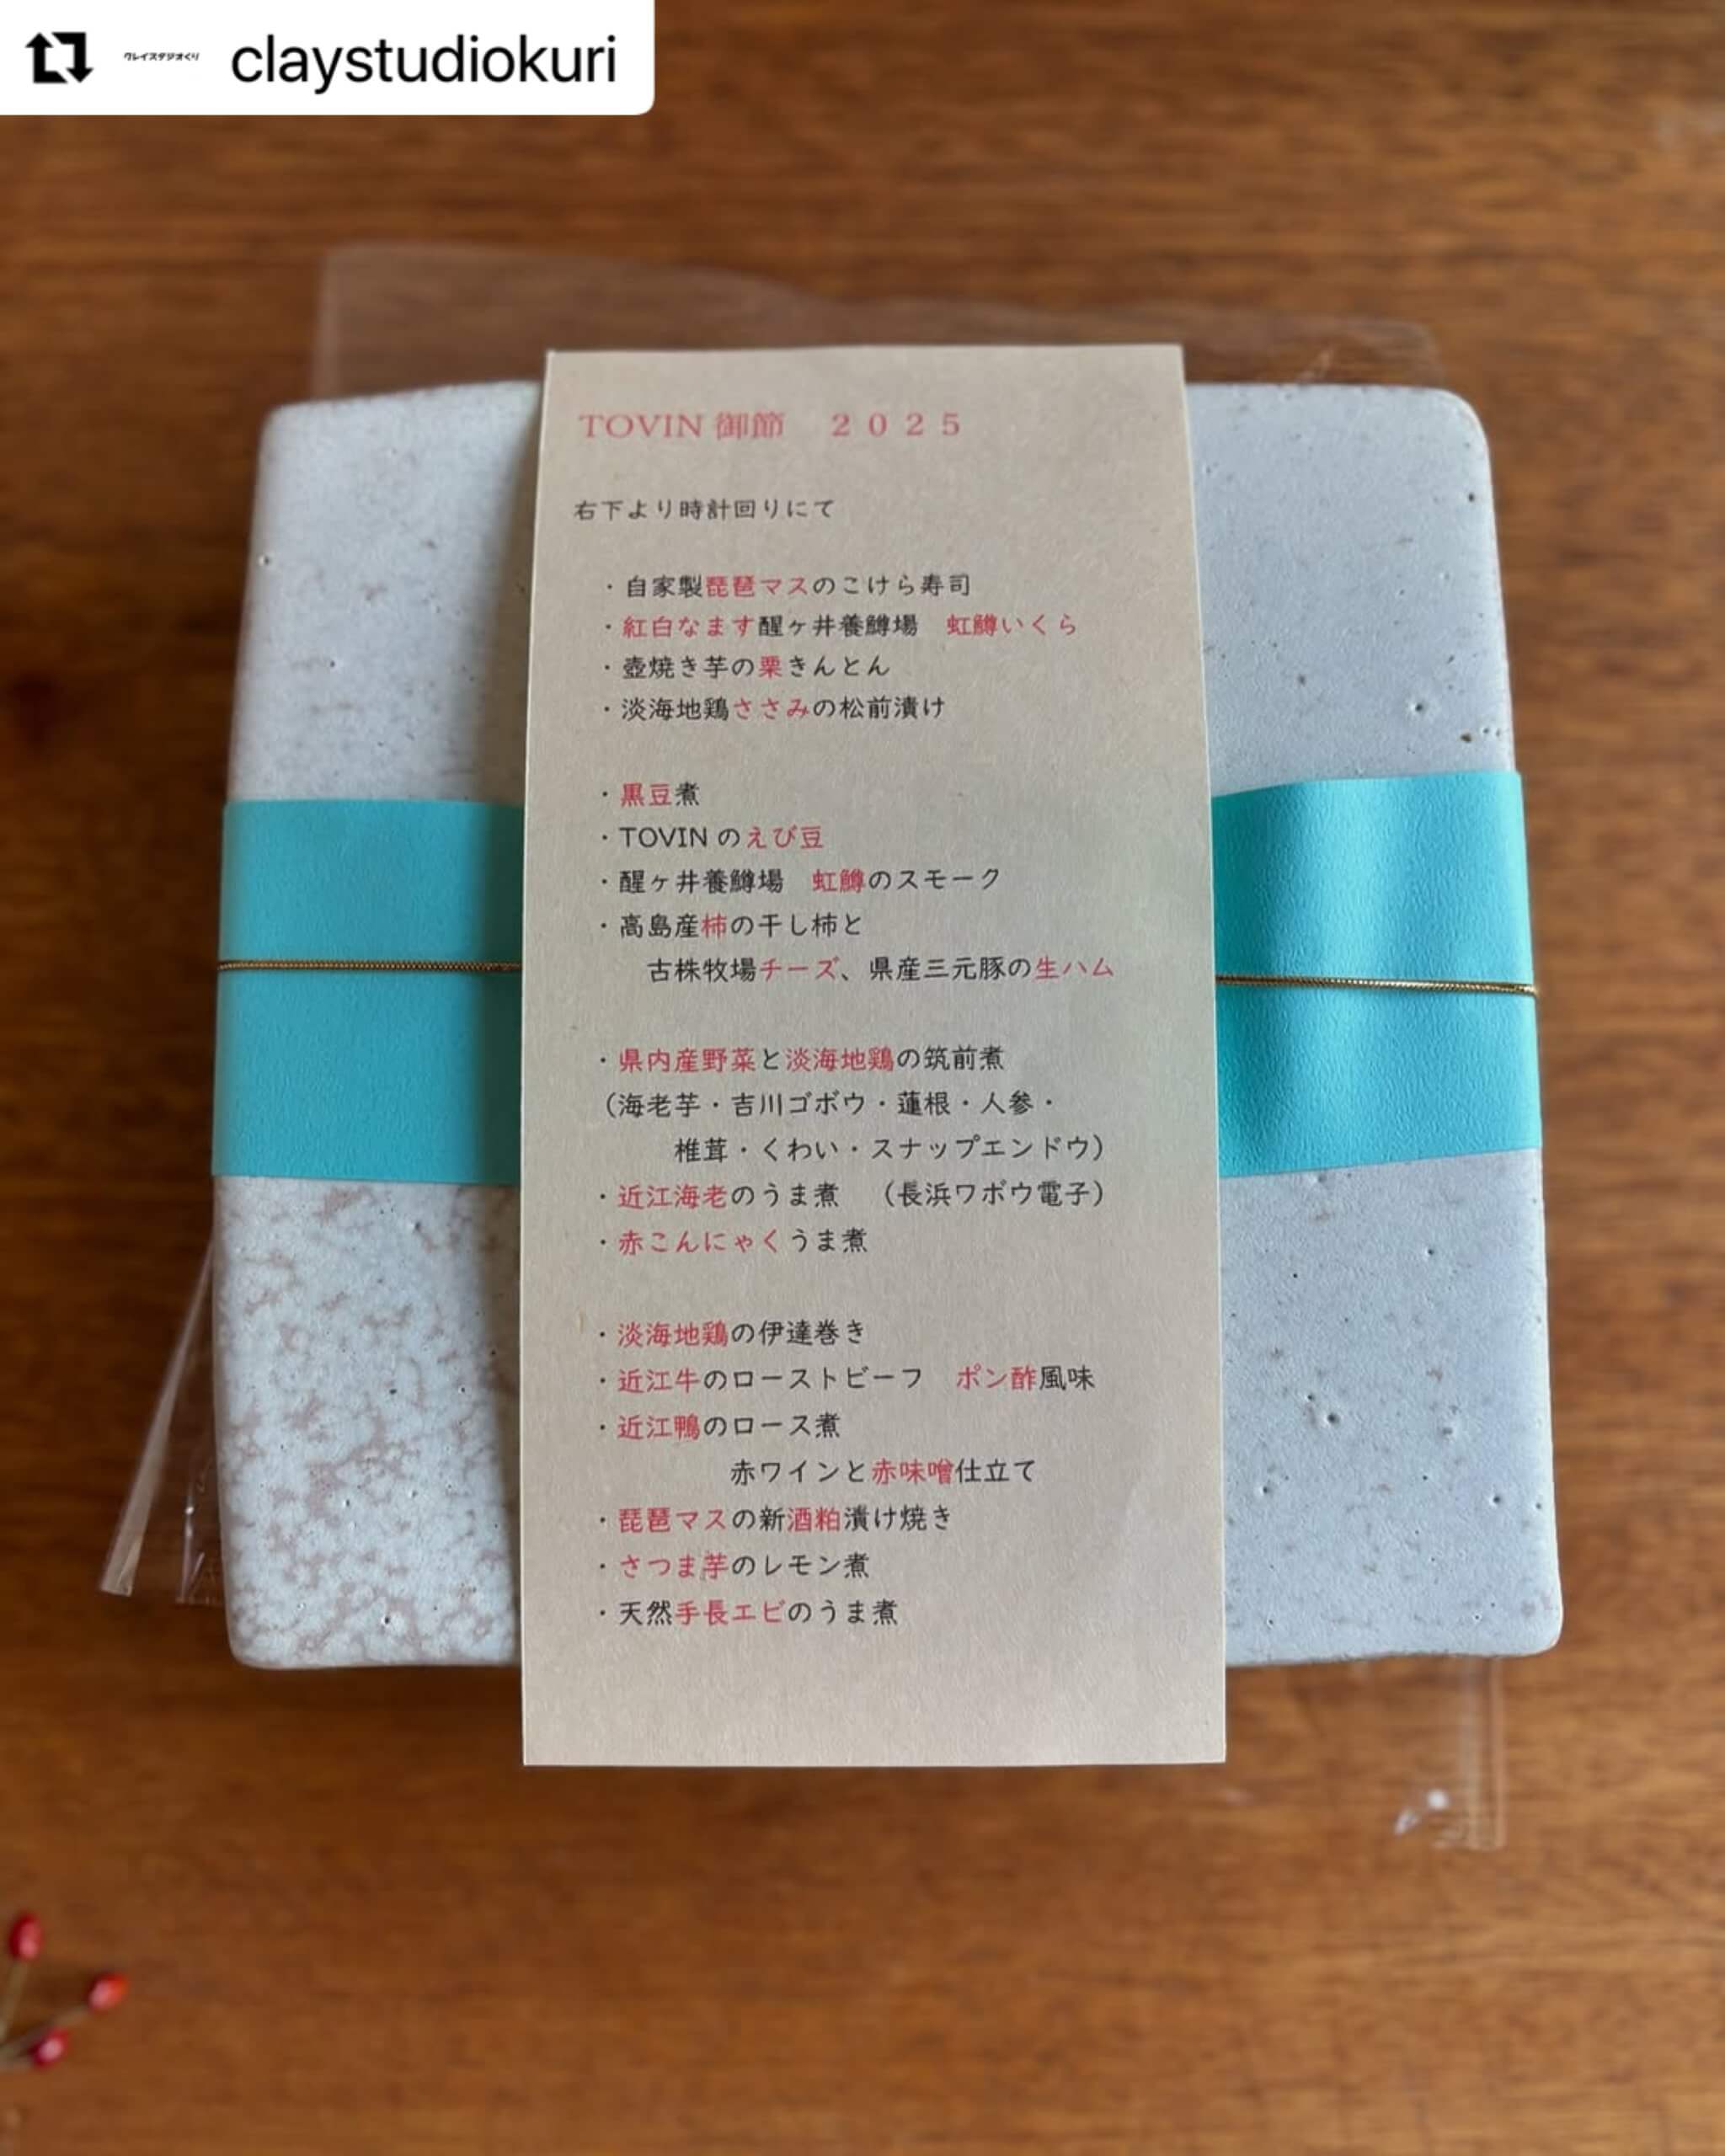 クレイスタジオくり
claystudiokuri
TOVIN 御節　２０２５
右下より時計回りにて
・自家製琵琶マスのこけら寿司
・紅白なます醒ヶ井養鱒場　虹鱒いくら
・壺焼き芋の栗きんとん
・淡海地鶏ささみの松前漬け
・黒豆煮
・TOVIN のえび豆
・醒ヶ井養鱒場　虹鱒のスモーク
・高島産柿の干し柿と
古株牧場チーズ、県産三元豚の生ハム
・県内産野菜と淡海地鶏の筑前煮
（海老芋・吉川ゴボウ・蓮根・人参・
椎茸・くわい・スナップエンドウ）
・近江海老のうま煮　（長浜ワボウ電子）
・赤こんにゃくうま煮
・淡海地鶏の伊達巻き
・近江牛のローストビーフ　ポン酢風味
・近江鴨のロース煮
赤ワインと赤味噌仕立て
・琵琶マスの新酒粕漬け焼き
・さつま芋のレモン煮
・天然手長エビのうま煮